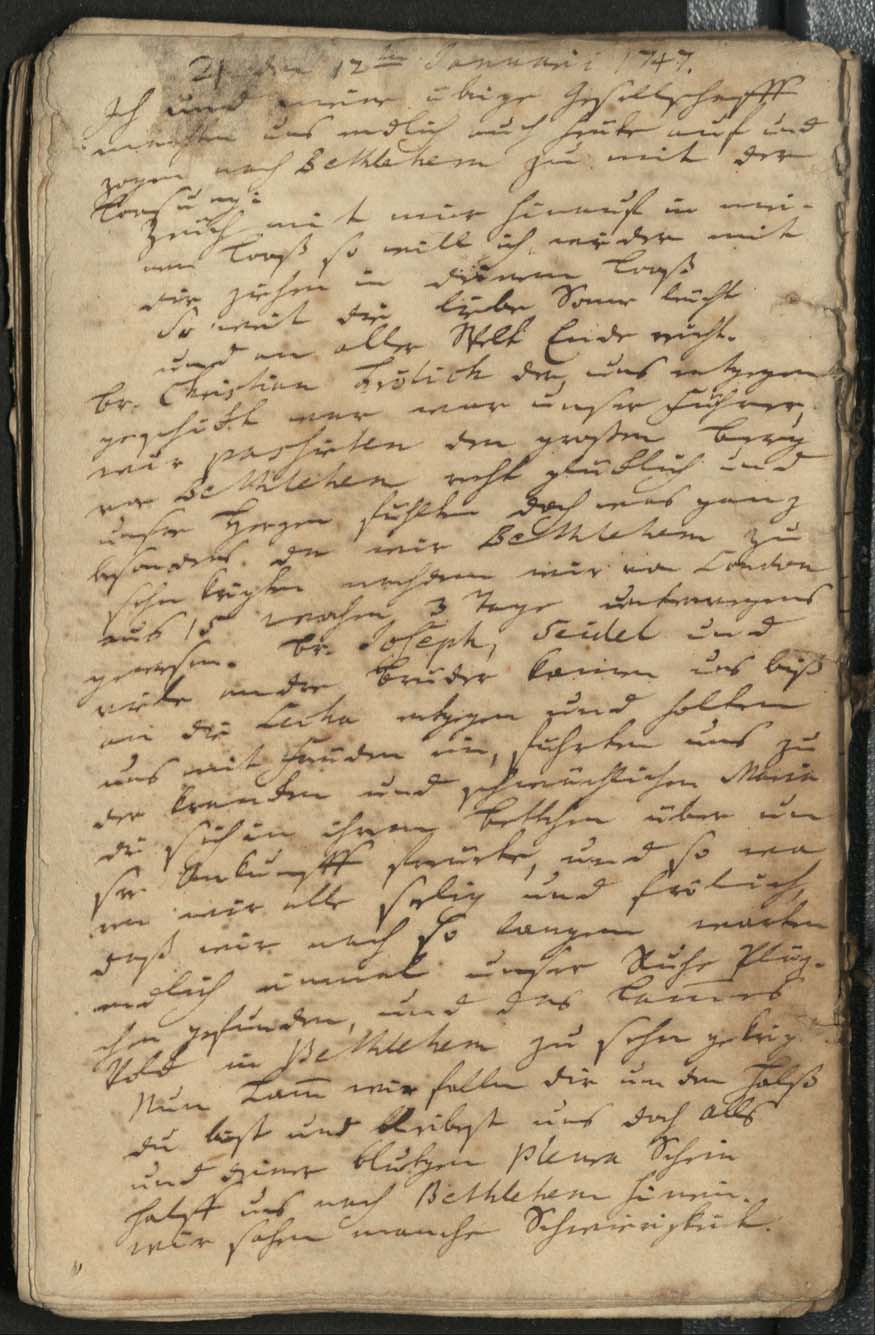 ♃ den 12ten Januarii 1747.
Ich und meine übrige Gesellschafft
machten uns endlich auch heute auf und
zogen nach Bethlehem zu mit der
Loosung:
Zeuch mit mir hinauf in mei-
nem Looß so will ich wieder mit
dir ziehen in deinem Looß
So weit die liebe Sonne leucht
und an aller Welt Ende reicht.
Br. Christian Frölich der, uns entgegen
geschickt war war unser Führer,
wir passirten den großen Berg
vor Bethlehem recht glücklich und
unsre Herzen fühlten doch was ganz
besonders da wir Bethlehem zu
sehn krigten nachdem wir von London
aus 15 Wochen 3 Tage unterwegens
gewesen. Br. Joseph, Seidel und
viele andre Brüder kamen uns biß
an die Lecha entgegen und holten
uns mit Freuden ein, führten uns zu
der kranken und schwächlichen Maria
die sich in ihrem Bettchen über un
sre Ankunfft freuete, und so wa
ren wir alle selig und frölich,
daß wir nach so langem warten
endlich einmal unser Ruhe Pläz-
chen gefunden, und das Lammes
Volck in Bethlehem zu sehn gekrig
Nun Lamm wir fallen dir um den Halß
du bist und bleibest uns doch alls
und deiner blutgen Pleura Schein
halff uns nach Bethlehem hinein.
wir sahen manche Schwierigkeit.